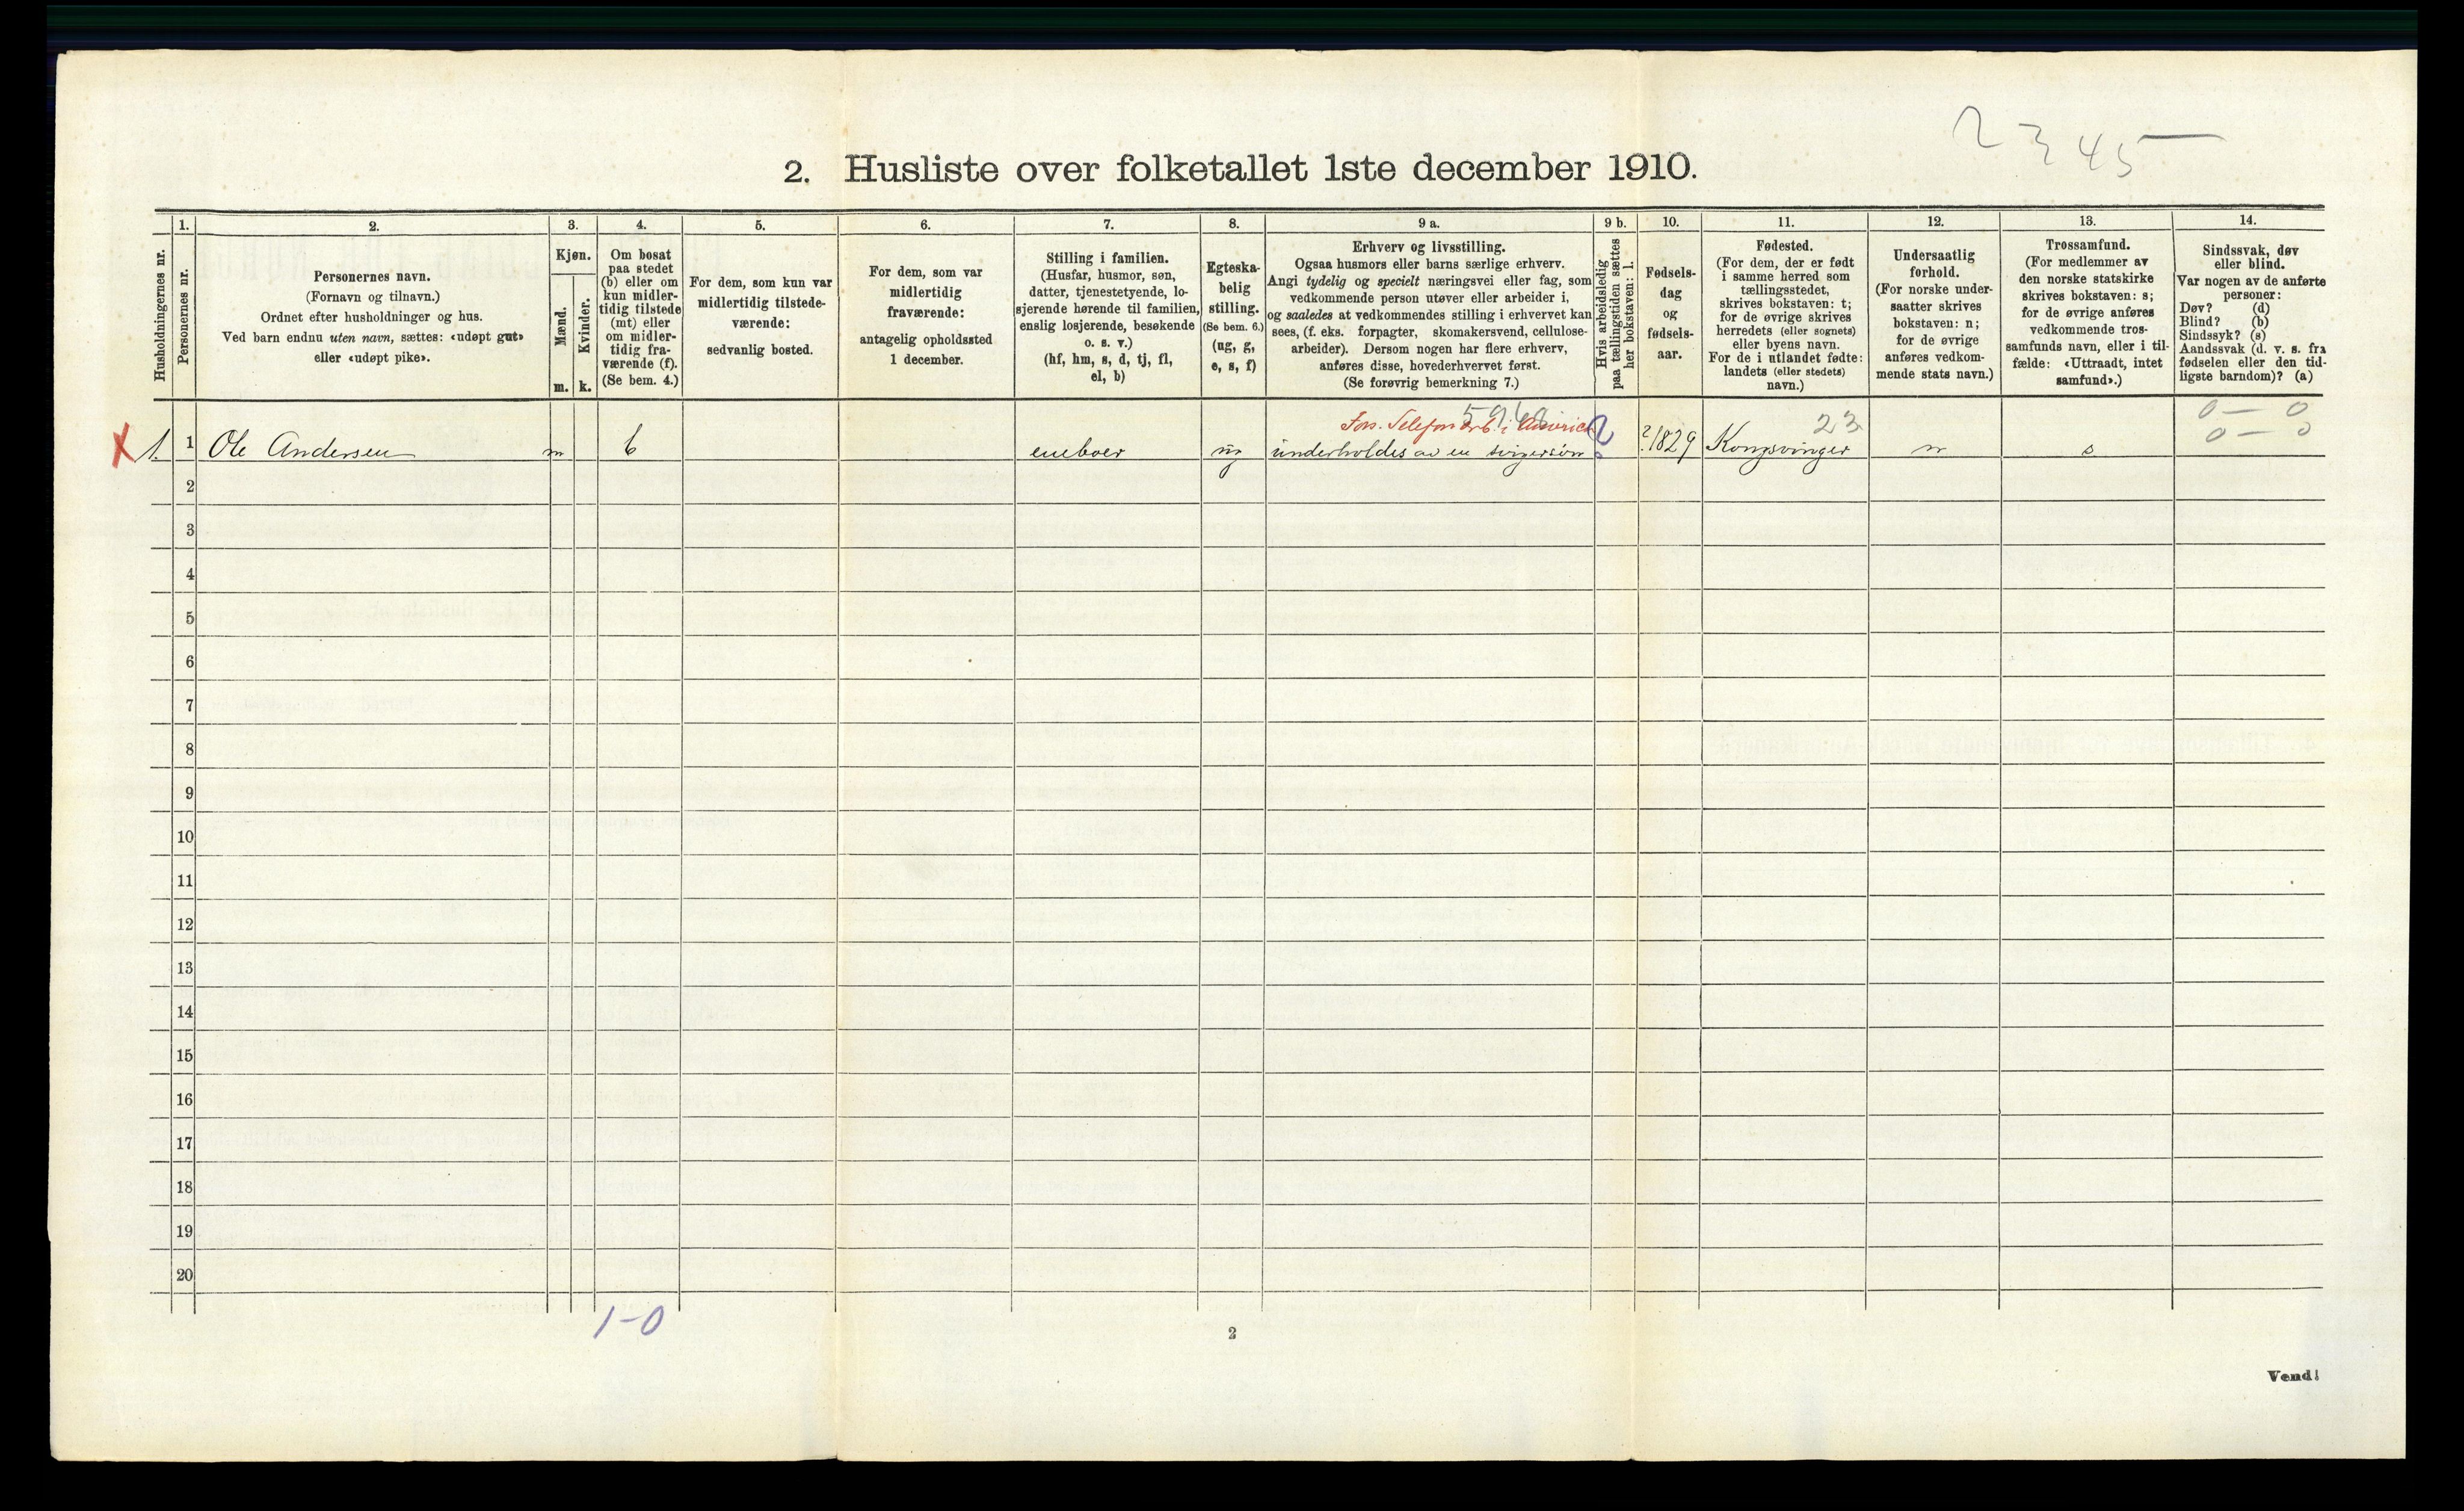 2 3 45
2. Husliste over folketallet 1ste december 1910.
Husholdningernes nr.
1.
Personernes nr.
2.
Personernes navn.
(Fornavn og tilnavn.)
Ordnet efter husholdninger og hus.
Ved barn endnu uten navn, sættes: «udøpt gut»
eller «udøpt pike».
3.
Kjøn.
Mænd.
m.
Kvinder.
k.
4.
Om bosat
paa stedet
(b) eller om
kun midler-
tidig tilstede
(mt) eller
om midler-
tidig fra-
værende (f).
(Se bem. 4.)
5.
For dem, som kun var
midlertidig tilstede-
værende:
sedvanlig bosted.
6.
For dem, som var
midlertidig
fraværende:
antagelig opholdssted
1 december.
7.
Stilling i familien.
(Husfar, husmor, søn,
datter, tjenestetyende, lo-
sjerende hørende til familien,
enslig losjerende, besøkende
o. s. v.)
(hf, hm, s, d, tj, fl,
el, b)
8.
Egteska-
belig
stilling.
(Se bem. 6.)
(ug, g,
e, s, f)
9 a.
Erhverv og livsstilling.
Ogsaa husmors eller barns særlige erhverv.
Angi tydelig og specielt næringsvei eller fag, som
vedkommende person utøver eller arbeider i,
og saaledes at vedkommendes stilling i erhvervet kan
sees, (f. eks. forpagter, skomakersvend, cellulose-
arbeider). Dersom nogen har flere erhverv,
anføres disse, hovederhvervet først.
(Se forøvrig bemerkning 7.)
9 b.
Hvis arbeidsledig
paa tællingstiden sættes
her bokstaven: l.
10.
Fødsels-
dag
og
fødsels-
aar.
11.
Fødested.
(For dem, der er født
i samme herred som
tællingsstedet,
skrives bokstaven: t;
for de øvrige skrives
herredets (eller sognets)
eller byens navn.
For de i utlandet fødte:
landets (eller stedets)
navn.)
12.
Undersaatlig
forhold.
(For norske under-
saatter skrives
bokstaven: n;
for de øvrige
anføres vedkom-
mende stats navn.)
13.
Trossamfund.
(For medlemmer av
den norske statskirke
skrives bokstaven: s;
for de øvrige anføres
vedkommende tros-
samfunds navn, eller i til-
fælde: «Uttraadt, intet
samfund».)
14.
Sindssvak, døv
eller blind.
Var nogen av de anførte
personer:
Døv? (d)
Blind? (b)
Sindssyk? (s)
Aandssvak (d. v. s. fra
fødselen eller den tid-
ligste barndom)? (a)
Fors. Telefonarb. i Amerika 23 0 — 0
X 1. 1 Ole Andersen m b eneboer ug underholdes av en ? ? 1829 Kongsvinger n s 0 — 0
2
3
4
5
6
7
8
9
10
11
12
13
14
15
16
17
18
19
20
1-0
2
Vend!